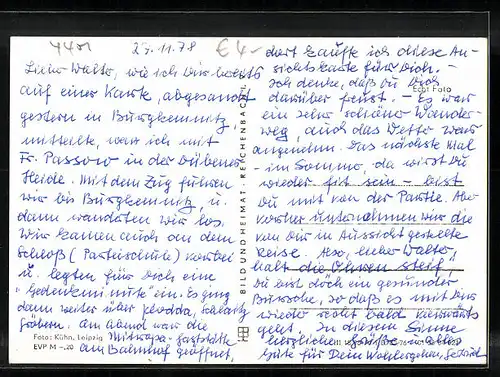 4401
23.11.78
€4-
Lieber Walter, wie ich Dir bereits
auf einer Karte, abgesandt
gestern in Burgkemnitz,
mitteilte, war ich mit
Fr. Passow in der Dübener
Heide. Mit dem Zug fuhren
wir bis Burgkemnitz, u.
dann wanderten wir los.
Wir kamen auch an dem
Schloß (Parteischule) vorbei
u. legten für Dich eine
"Gedenkminute" ein. Es ging
dann weiter über
Gröbern. Am Abend war die
Mitropa-Gaststätte
am Bahnhof geöffnet,
dort kaufte ich diese An-
sichtskarte für Dich. -
Ich denke, daß Du Dich
darüber freust. - Es war
ein sehr schöner Wander-
weg, auch das Wetter war
angenehm. Das nächste Mal
- im Sommer, da wirst Du
wieder fit sein - bist
Du mit von der Partie. Aber
vorher unternehmen wir die
von Dir in Aussicht gestellte
Reise. Also, lieber Walter,
halt die Ohren steif
Du bist doch ein gesunder
Bursche, so daß es mit Dir
wieder recht bald vorwärts
geht. In diesem Sinne
herzliche Grüße u. alles
Gute für Dein Wohlergehen,
Echt Foto
BILD UND HEIMAT · REICHENBACH
Foto: Kühn, Leipzig
EVP M -.20